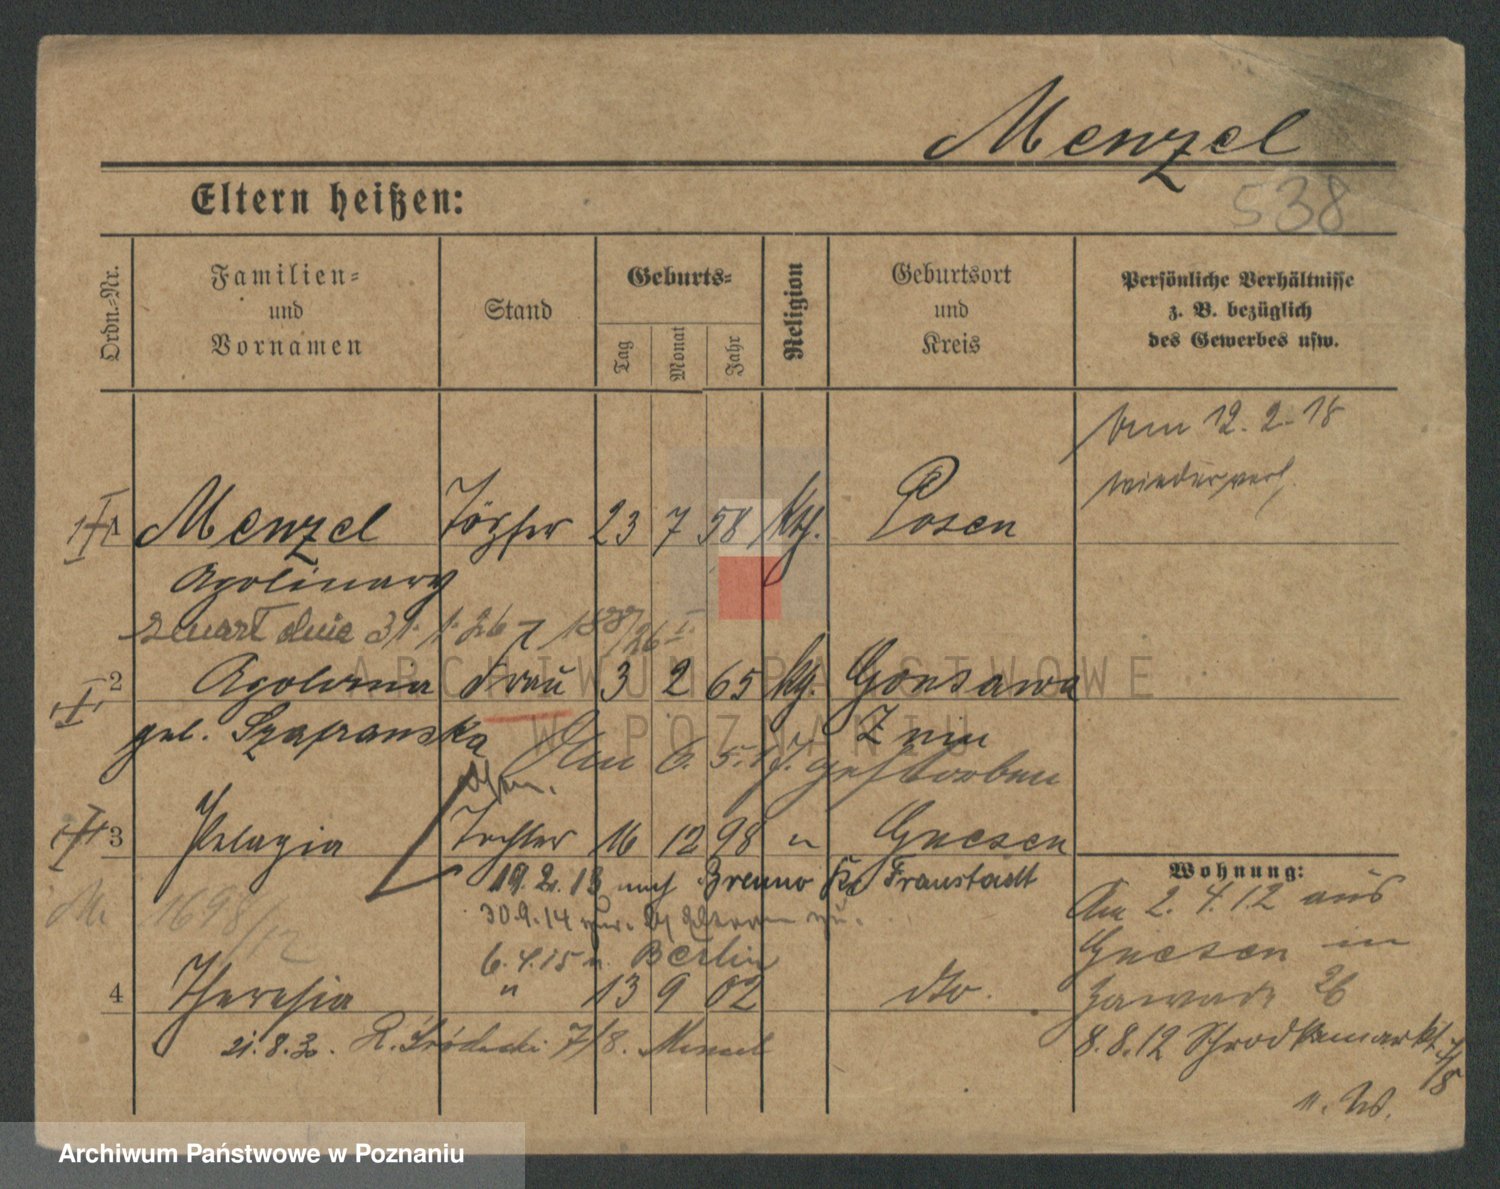 Menzel
538
Eltern heißen:
Ordn.-Nr.
Familien- und Vornamen
Stand
Geburts-
Tag
Monat
Jahr
Religion
Geburtsort und Kreis
Persönliche Verhältnisse z. B. bezüglich des Gewerbes usw.
12. 2. 18
1 Menzel Töpfer 23 7 58 kth. Posen
Apolinary
zmarł dnia 31. 1. 26
2 Apolonia Frau 3 2 65 kth. Gonsawa
geb. Szafranska Znin
Am 6. 5. 17. gestorben
3 Pelagia Tochter 16 12 98 " Gnesen
19. 2. 13 nach Brenno Kr. Fraustadt
30.9.14
6. 4. 15 n. Berlin
1698/12
4 Theresia " 13 9 02 dto.
21. 8. 30. R. Śródecki 7/8. Menzel
Wohnung:
Am 2. 4. 12 aus
Gnesen in
Zawade 26
8. 8. 12 Schrodkamarkt 7/8
ARCHIWUM PAŃSTWOWE
W POZNANIU
Archiwum Państwowe w Poznaniu